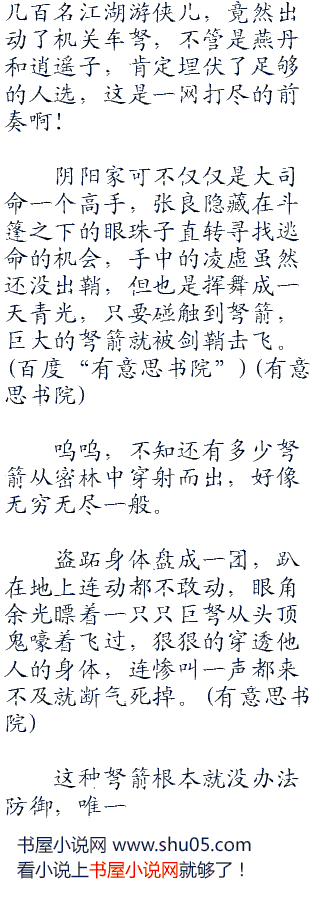 几百名江湖游侠儿，竟然出
动了机关车弩，不管是燕丹
和逍遥子，肯定埋伏了足够
的人选，这是一网打尽的前
奏啊！
阴阳家可不仅仅是大司
命一个高手，张良隐藏在斗
篷之下的眼珠子直转寻找逃
命的机会，手中的凌虚虽然
还没出鞘，但也是挥舞成一
天青光，只要碰触到弩箭，
巨大的弩箭就被剑鞘击飞。
(百度“有意思书院”)(有意
思书院)
呜呜，不知还有多少弩
箭从密林中穿射而出，好像
无穷无尽一般。
盗跖身体盘成一团，趴
在地上连动都不敢动，眼角
余光瞟着一只只巨弩从头顶
鬼嚎着飞过，狠狠的穿透他
人的身体，连惨叫一声都来
不及就断气死掉。(有意思书
院)
这种弩箭根本就没办法
防御，唯一
书屋小说网 www.shu05.com
看小说上书屋小说网就够了！